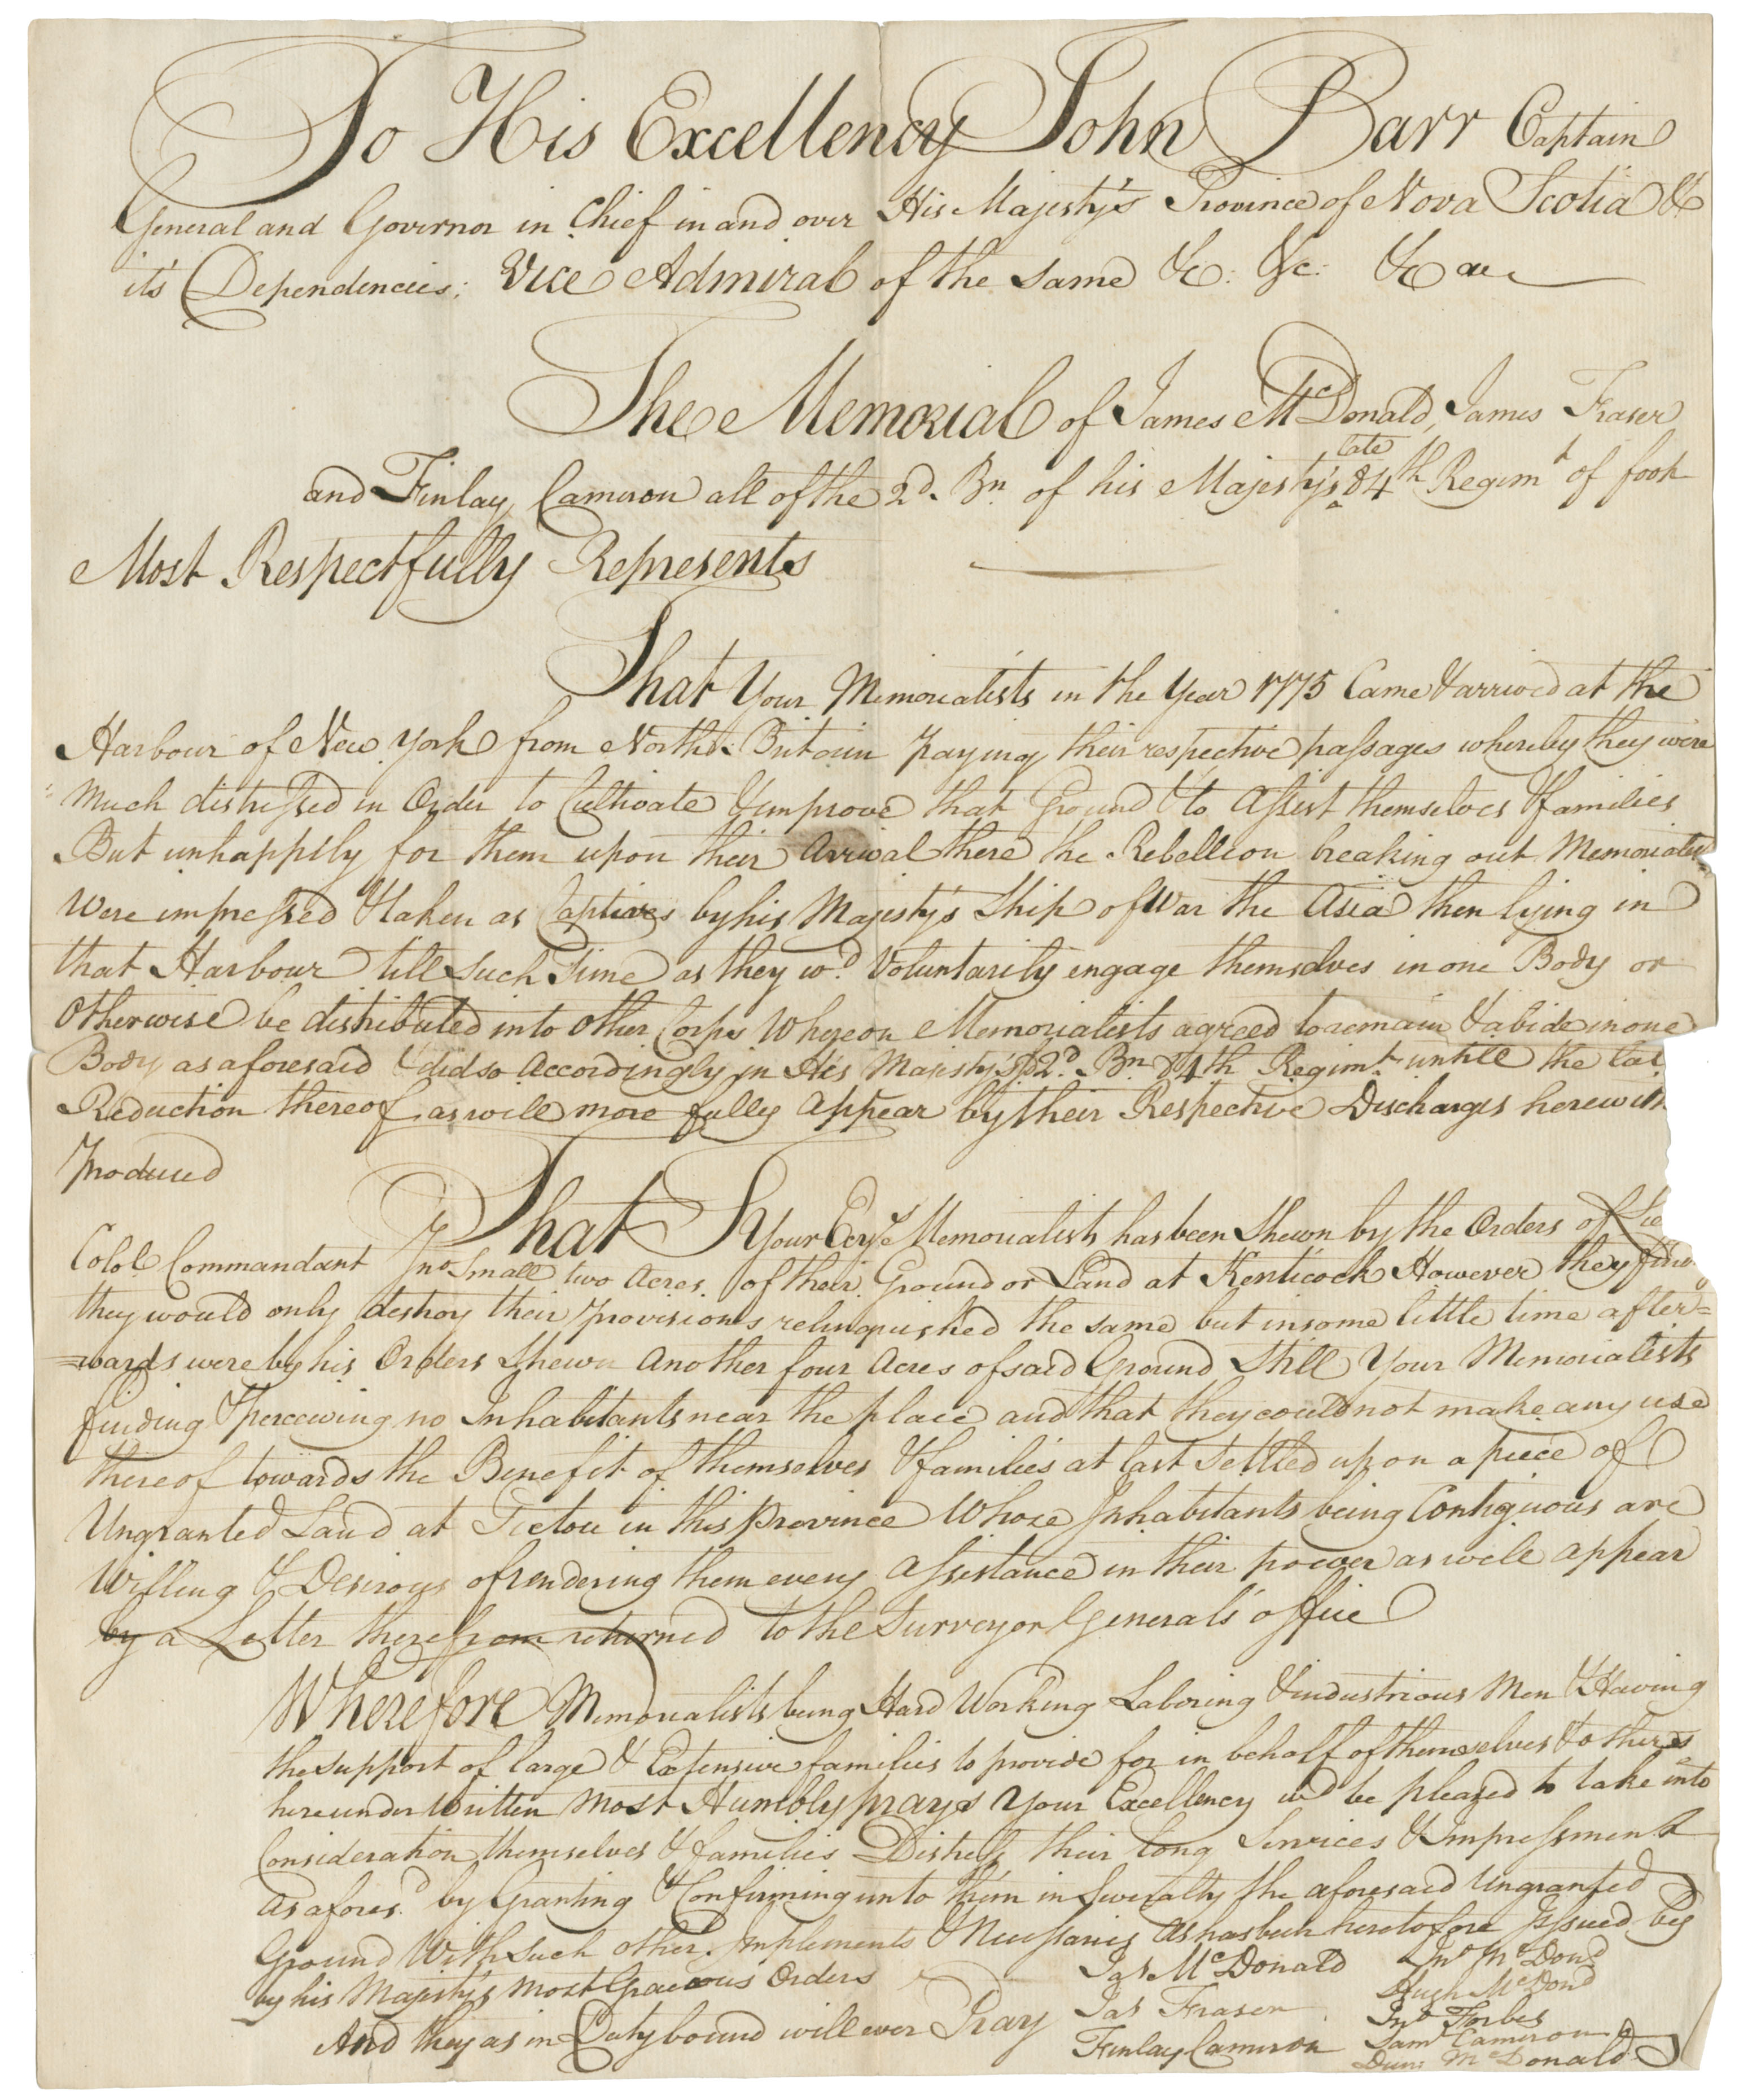 To His Excellency John Parr Captain
General and Governor in Chief in and over His Majesty's Province of Nova Scotia &
it's Dependencies; Vice Admiral of the same &c: &c: &c
The Memorial of James McDonald, James Fraser
and Finlay Cameron all of the 2d. Bn of his Majesty's late 84th Regimt of foot
Most Respectfully Represents
That Your Memorialists in the Year 1775 Came & arrived at the
Harbour of New York from North Britain paying their respective passages whereby they were
Much distressed in Order to Cultivate & improve that Ground & to Assist themselves & families
But unhappyly for them upon their Arrival there the Rebellion breaking out Memorialists
Were impressed & taken as Captives by his Majesty's Ship of War the Asia then lying in
that Harbour till such Time as they wd. Voluntarily engage themselves in one Body or
Otherwise be distributed into other Corps Whereon Memorialists agreed to remain & abide in one
Body as aforesaid & did so Accordingly in His Majesty's 2d. Bn 84th Regimt. untill the
Reduction thereof as will more fully Appear by their Respective Discharges herewith
Produced
That Your Memorialists has been Shewn by the Orders of
Colol. Commandant Jno Small two Acres of their Ground or Land at Kenticock However they
they would only destroy their provisions relinquished the same but in some little time after=
=wards were by his Orders Shewn Another four Acres of said Ground Still Your Memorialists
finding & perceiving no Inhabitants near the place and that they could not make any use
thereof towards the Benefit of themselves & families at last Settled upon a piece of
Ungranted Land at Pictou in this Province Whose Inhabitants being Contiguous are
Willing & Desirous of rendering them every Assistance in their power as will appear
by a Letter therefrom returned to the Surveyor General's office
Wherefore Memorialists being Hard Working Laboring & industrious Men & Having
the support of large & Extensive families to provide for in behalf of themselves & others
hereunder Written Most Humbly prays Your Excellency wd be pleased to take into
Consideration themselves & families Distress their long Services & Impressment
As afores.d by Granting & Confirming unto them in Severalty the aforesaid Ungranted
Ground With such other Implements & Necessaries As has been heretofore Issued by
by his Majesty's Most Gracious Orders
And they as in Duty bound will ever Pray
Jas McDonald
Jas Fraser
Finlay Cameron
Jno McDond
Hugh McDond
Jno Forbes
Saml Cameron
Dun: McDonald